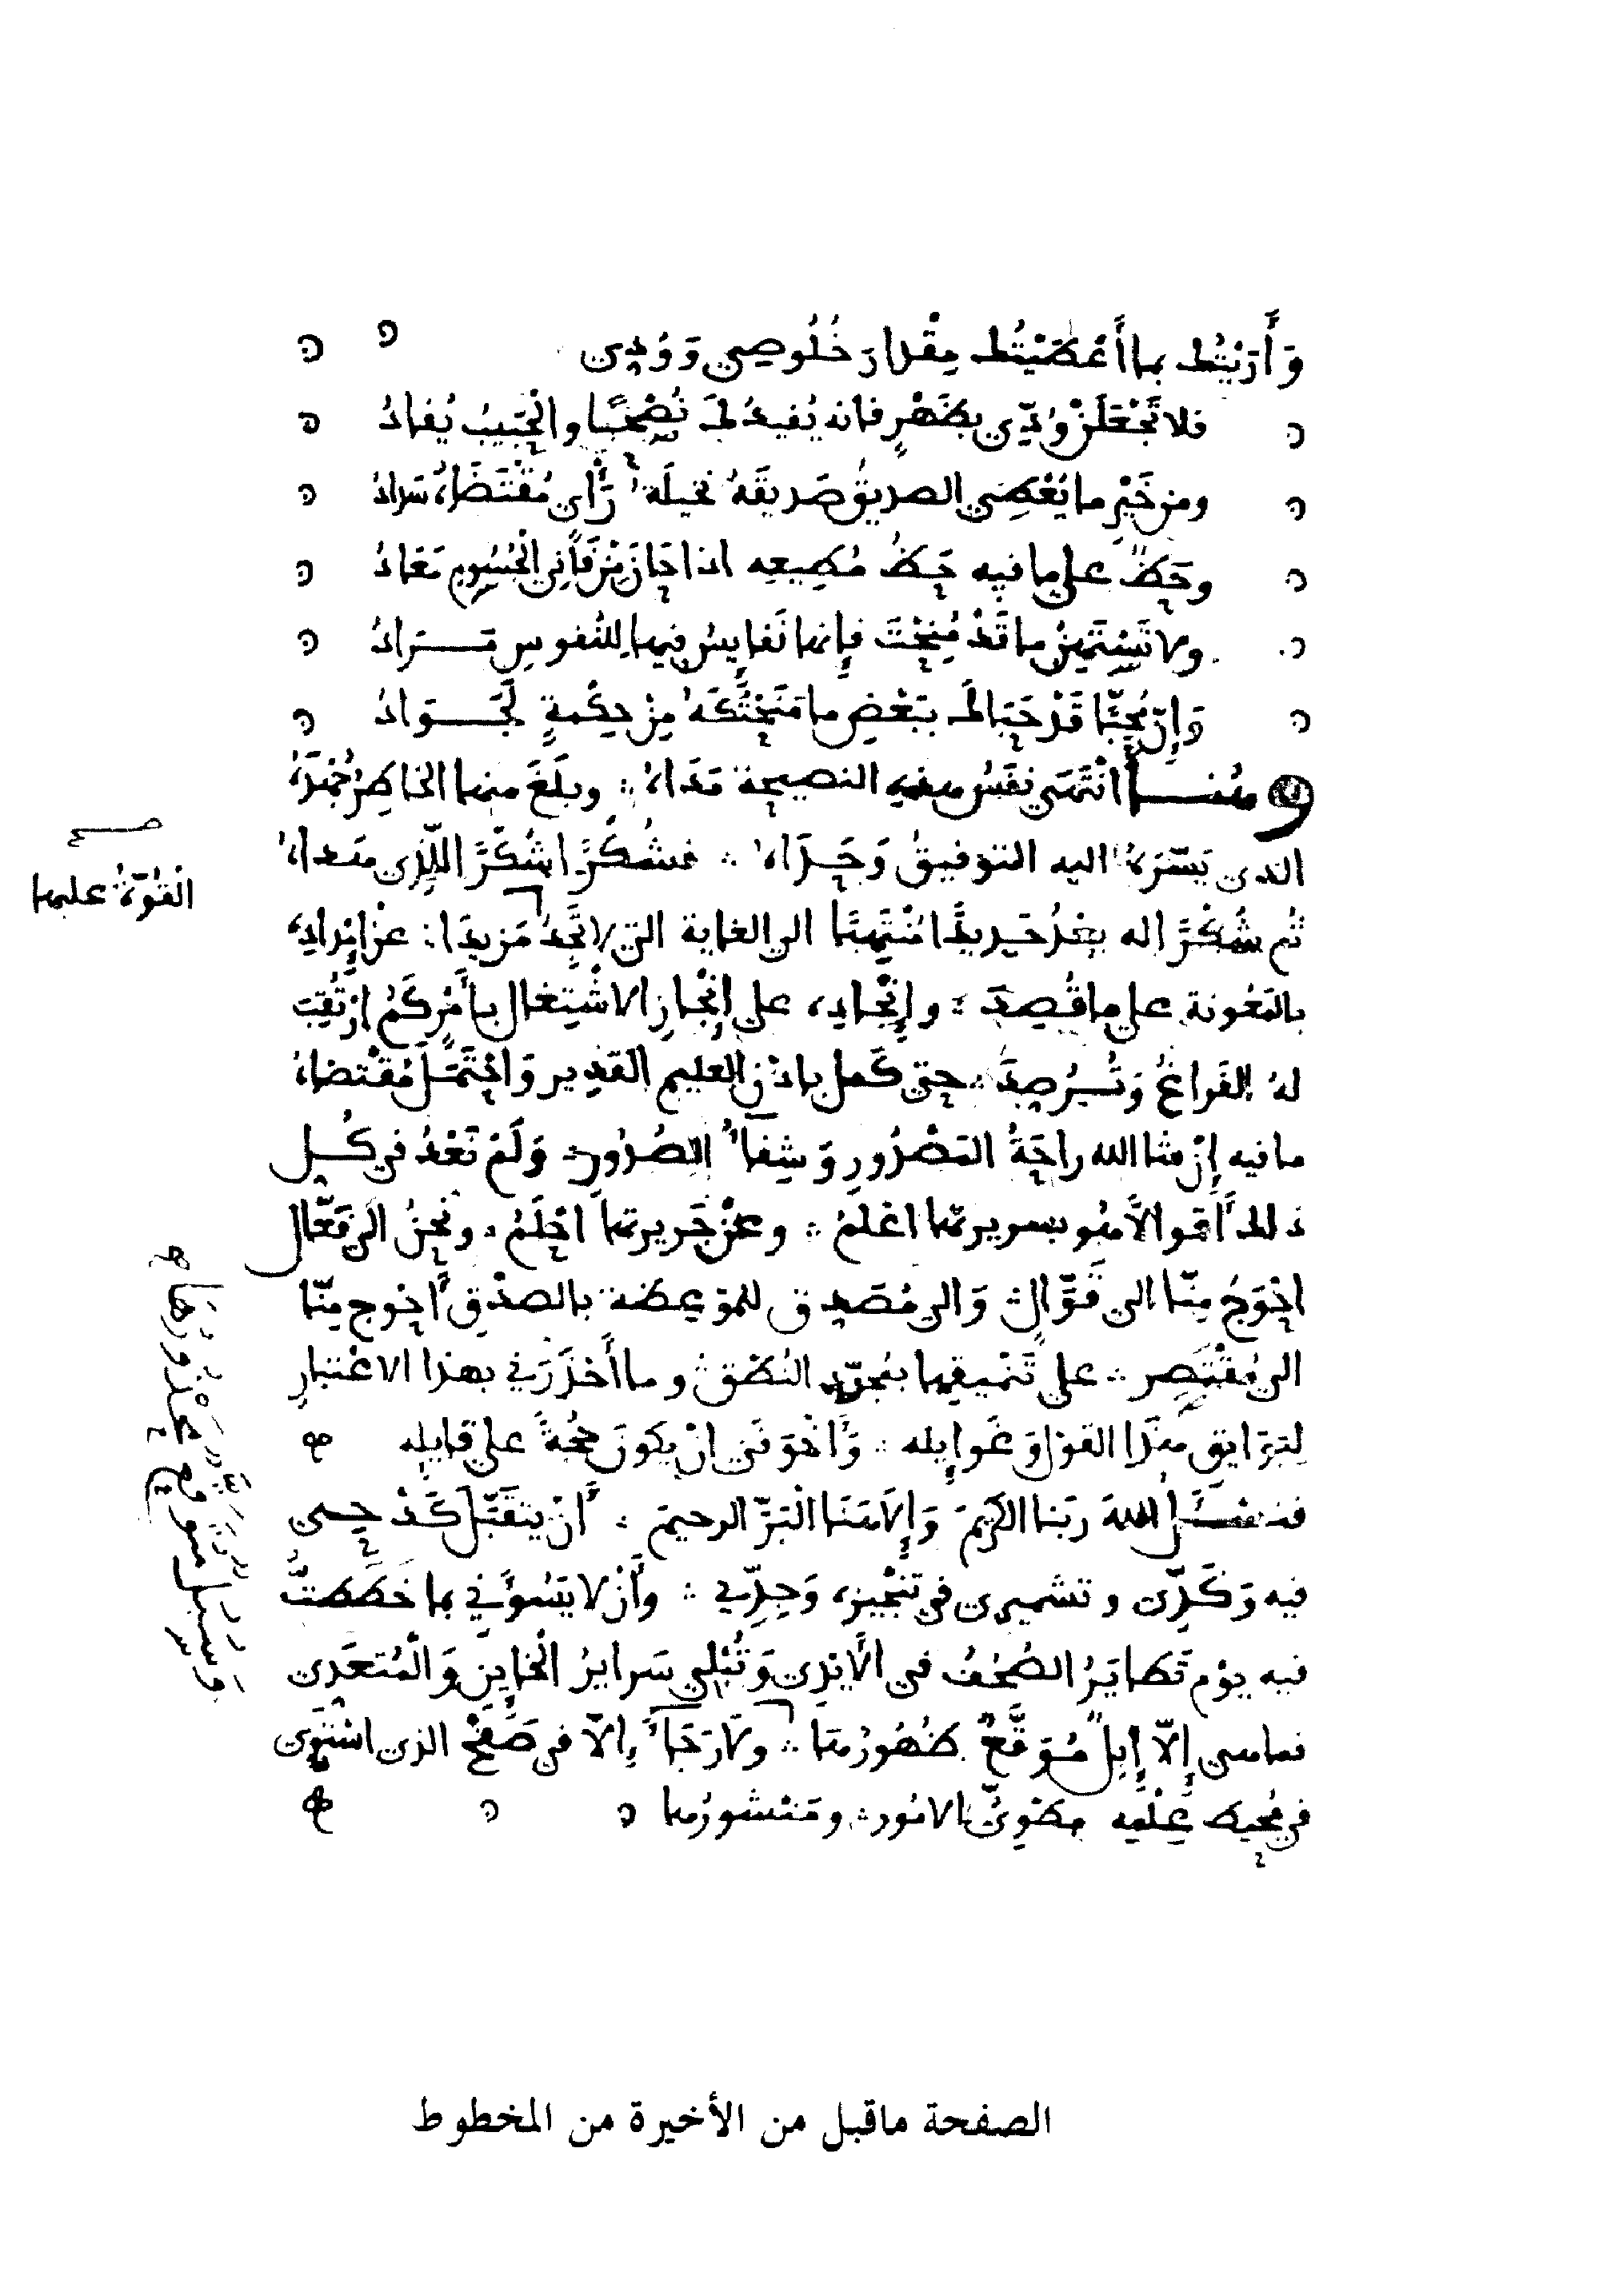 وَأَرَيْتُك بما أَعْطَيْتُك مِقْدارَ خُلُوصِي وَوُدِي
فلا تَجْعَلَنْ وُدِّي بِظَهْرٍ فانه يُفيدُ لَك نُصْحًا والحَبيبُ يُفادُ
ومن خَيْرِ ما يُعْطِي الصديقُ صَديقَهُ نخيلَةُ رَأْي مُقْتَضَاهُ سَدادُ
وحَظٌّ على ما فيه حَظُّ مُطِيعِه اذا حَانَ مِنْ فَانِي الجُسُومِ مَعَادُ
ولا تَسْتَهِنْ ما قَدْ مُنِحْتَ فإنها نَفايِسُ فيها لِلنُفوسِ مَرَادُ
وَإِنّ مُحِبًّا قَدْ حَبَا لَك بِبَعْضِ ما مَنَحْتُكَهُ مِنْ حِكْمةٍ لَجَوَادُ
وهُنا أَنْتَهَى نَفَسُ هذه النصيحة مَدَاهُ وبلَغَ منها الخاطِرُ جُهْدَهُ
الذي يَسّرَهُ اليه التوفيقُ وَحَدَاهُ فشُكْرًا شُكْرًا اللّذِي هداه
القُوّةُ عليها
ثُم شُكْرًا له بعْدُ جَديدًا مُنْتَهيًا الى الغاية التي لا تَجِدُ مَزِيدًا عن إمْدادِه
بالمَعُونة على ما قُصِدَ وإنْجادِه على إنْجازِ الاشْتِغال بأَمْرٍ كَمْ ارْتُقِبَ
لهُ الفَراغُ وَتُرُصِدَ حتى كَمل باذن العليم القَدِير وَاحْتَمَلَ مُقْتضاهُ
ما فيه إِنْ شا الله راحَةُ المَصْدُورِ وَشِفَآءُ الصُدُورِ وَلَمْ نَعْدُ في كُلِ
ذلك أَقوالاً هُو بسريرتها اعْلَمُ وعنْ جَريرتها احْلَمُ ونحنُ الى فَعّال
احْوَجُ مِنّا الى قَوّالٍ وَالى مُصَدِق للموْعِظة بالصدْقِ أَحْوج مِنّا
الى مُقْتَصِر على تَنْميقِها بمُجرّدِ النُطْقِ وما أَحْذَرَنِي بهذا الاعْتبارِ
لبَوَايق هَذَا القَوْل وَغَوايِله وَأَخْوَفَنِي انْ يكونَ حُجّةً على قايلِه
فنسْئَلُ اللهَ رَبَنا الكَريمَ وَإِلاهَنَا الْبَرّ الرحيمَ أَنْ يتقَبّلَ كَدْحِى
فيه وَكَدِّى وتشميرى في تنْجيزِه وَجِدِّي وأَنْ لا يَسُوءَنِي بما خَطَطتُّ
فيه يوْم تَطايَرُ الصُحُفُ في الأَيْدِي وَتُبْلَى سَرايرُ الخايِنِ وَالْمُتعَدِى
فما هى إِلاّ إِبِلٌ مُوَقَّعٌ ظُهُورُها ولا رَجَاءَ إلاّ في صَفْحِ الذي اسْتَوَى
في مُحيط عِلْمِه مَطْوِىُّ الامُور ومَنْشورُها
الصفحة ماقبل من الأخيرة من المخطوط